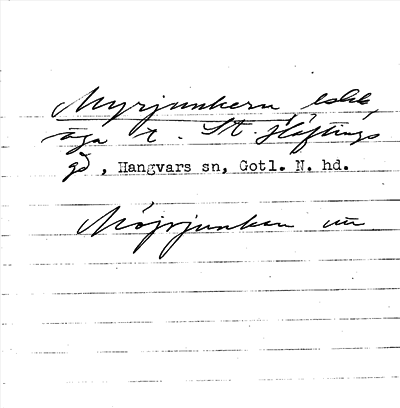 Myrjunkern
äga t. St. Häftings
gd, Hangvars sn, Gotl. N. hd.
Mojrjunkan